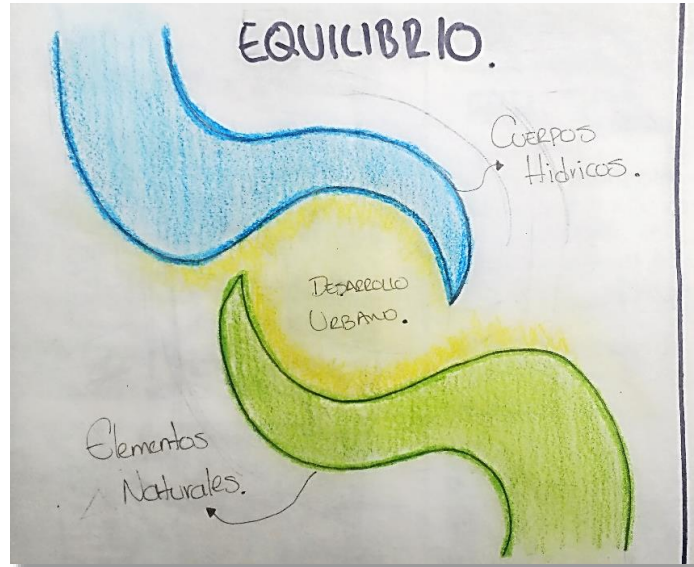 EQUILIBRIO.
CUERPOS
Hidricos.
DESARROLLO
URBANO.
Elementos
Naturales.